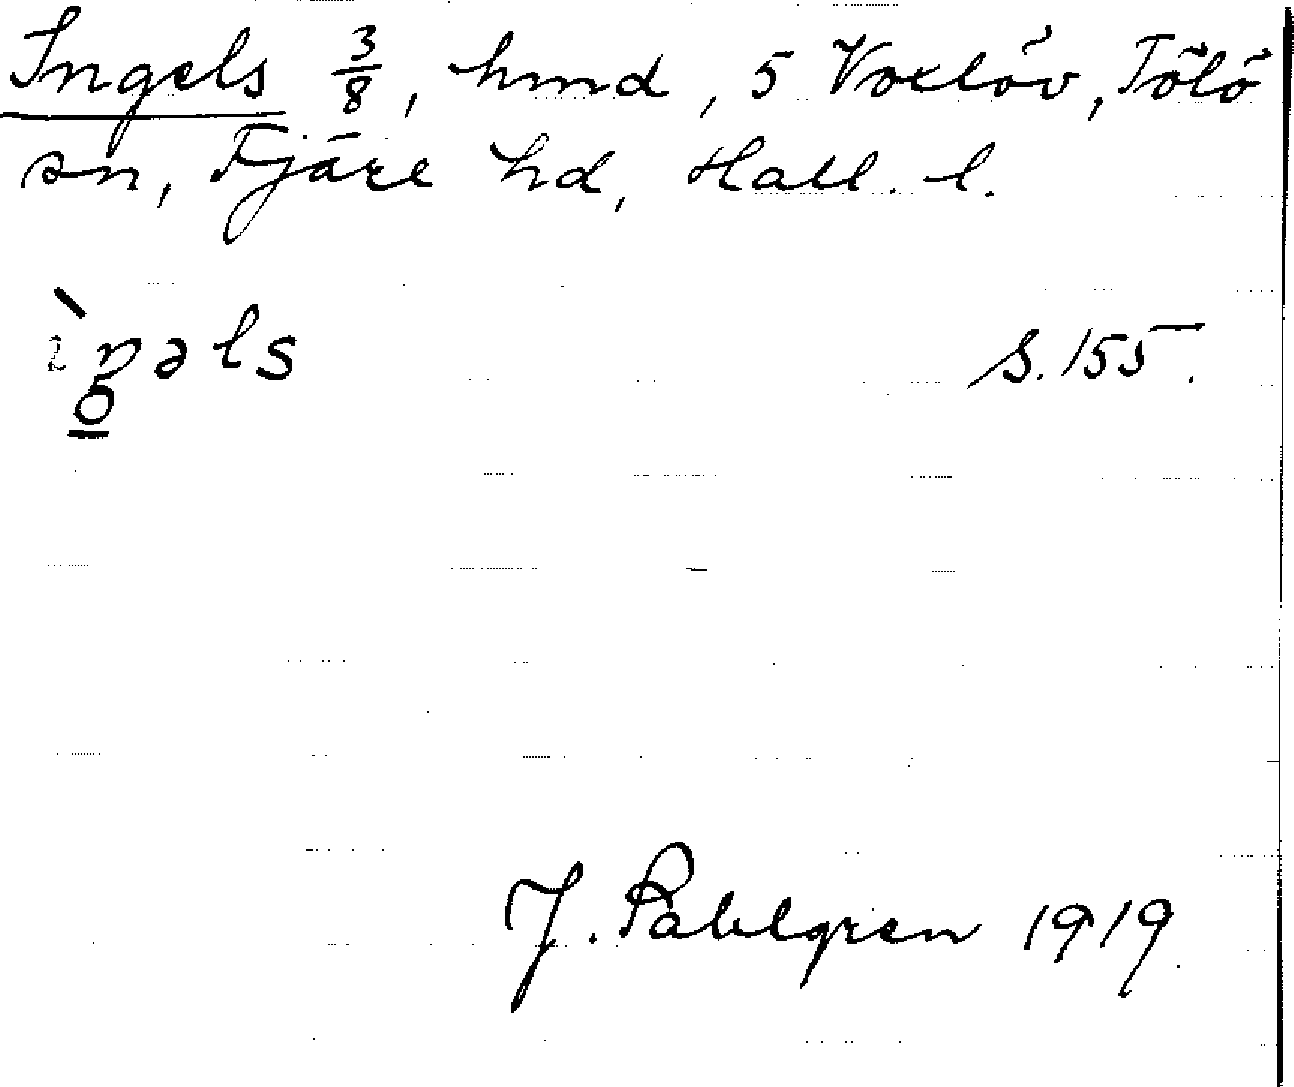 Ingels 3/8, hmd, 5 Voxlöv, Tölö
sn, Fjäre hd, Hall. l.
s. 155.
J. Pahlgren 1919